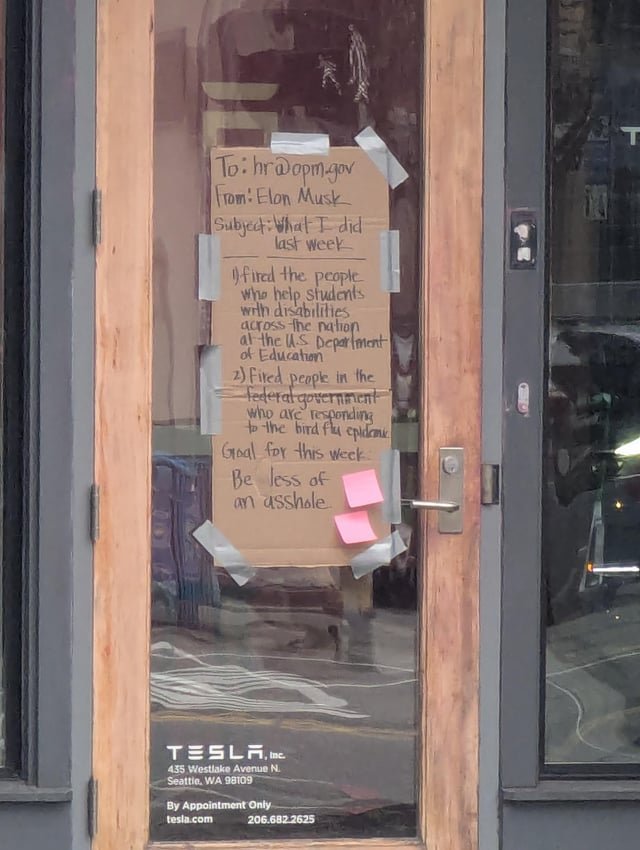 To: hr@opm.gov
From: Elon Musk
Subject: What I did
last week
1) fired the people
who help students
with disabilities
across the nation
at the U.S Department
of Education
2) Fired people in the
federal government
who are responding
to the bird flu epidemic
Goal for this week:
Be less of
an asshole.
TESLA, Inc.
435 Westlake Avenue N.
Seattle, WA 98109
By Appointment Only
tesla.com 206.682.2625